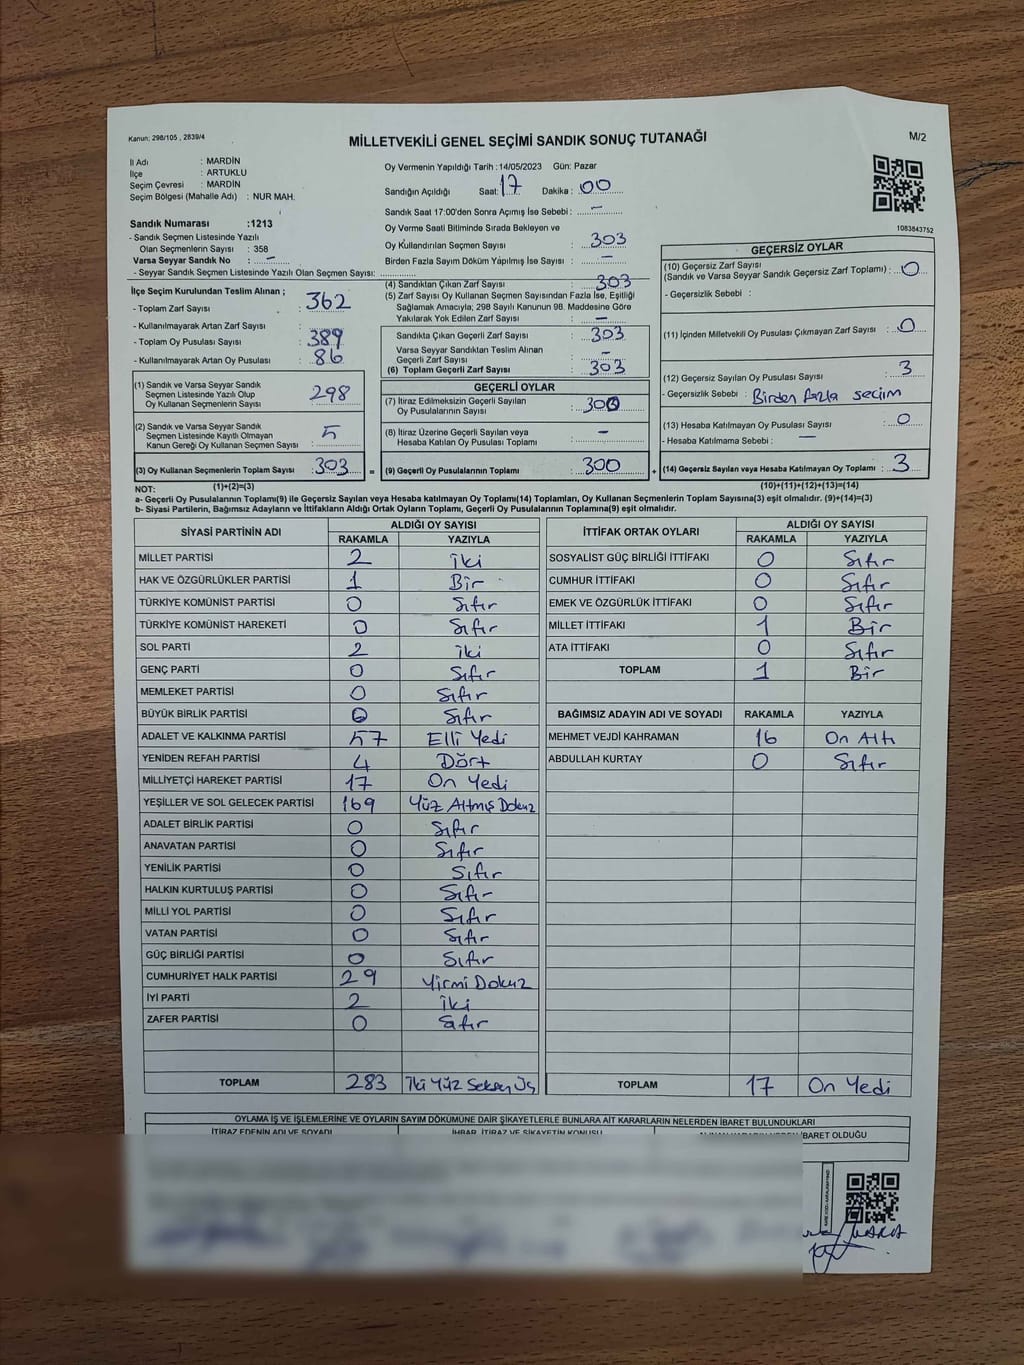 Kanun: 298/105 , 2839/4
MİLLETVEKİLİ GENEL SEÇİMİ SANDIK SONUÇ TUTANAĞI
M/2
İl Adı : MARDİN
İlçe : ARTUKLU
Seçim Çevresi : MARDİN
Seçim Bölgesi (Mahalle Adı) : NUR MAH.
Oy Vermenin Yapıldığı Tarih :14/05/2023 Gün: Pazar
Sandığın Açıldığı Saat: 17 Dakika : 00
Sandık Saat 17:00'den Sonra Açılmış İse Sebebi : -
Oy Verme Saati Bitiminde Sırada Bekleyen ve
Oy Kullandırılan Seçmen Sayısı : 303
Birden Fazla Sayım Döküm Yapılmış İse Sayısı : -
1083843752
Sandık Numarası :1213
- Sandık Seçmen Listesinde Yazılı
Olan Seçmenlerin Sayısı : 358
Varsa Seyyar Sandık No : -
- Seyyar Sandık Seçmen Listesinde Yazılı Olan Seçmen Sayısı:
İlçe Seçim Kurulundan Teslim Alınan ;
- Toplam Zarf Sayısı : 362
- Kullanılmayarak Artan Zarf Sayısı :
- Toplam Oy Pusulası Sayısı : 389
- Kullanılmayarak Artan Oy Pusulası : 86
(1) Sandık ve Varsa Seyyar Sandık
Seçmen Listesinde Yazılı Olup
Oy Kullanan Seçmenlerin Sayısı : 298
(2) Sandık ve Varsa Seyyar Sandık
Seçmen Listesinde Kayıtlı Olmayan
Kanun Gereği Oy Kullanan Seçmen Sayısı : 5
(3) Oy Kullanan Seçmenlerin Toplam Sayısı : 303
(1)+(2)=(3)
(4) Sandıktan Çıkan Zarf Sayısı : 303
(5) Zarf Sayısı Oy Kullanan Seçmen Sayısından Fazla İse, Eşitliği
Sağlamak Amacıyla; 298 Sayılı Kanunun 98. Maddesine Göre
Yakılarak Yok Edilen Zarf Sayısı : -
Sandıkta Çıkan Geçerli Zarf Sayısı : 303
Varsa Seyyar Sandıktan Teslim Alınan
Geçerli Zarf Sayısı : -
(6) Toplam Geçerli Zarf Sayısı : 303
GEÇERLİ OYLAR
(7) İtiraz Edilmeksizin Geçerli Sayılan
Oy Pusulalarının Sayısı : 300
(8) İtiraz Üzerine Geçerli Sayılan veya
Hesaba Katılan Oy Pusulası Toplamı : -
= (9) Geçerli Oy Pusulalarının Toplamı : 300 +
GEÇERSİZ OYLAR
(10) Geçersiz Zarf Sayısı
(Sandık ve Varsa Seyyar Sandık Geçersiz Zarf Toplamı) : 0
- Geçersizlik Sebebi :
(11) İçinden Milletvekili Oy Pusulası Çıkmayan Zarf Sayısı : 0
(12) Geçersiz Sayılan Oy Pusulası Sayısı : 3
- Geçersizlik Sebebi : Birden fazla seçim
(13) Hesaba Katılmayan Oy Pusulası Sayısı : 0
- Hesaba Katılmama Sebebi : -
(14) Geçersiz Sayılan veya Hesaba Katılmayan Oy Toplamı : 3
(10)+(11)+(12)+(13)=(14)
NOT:
a- Geçerli Oy Pusulaları Toplamı(9) ile Geçersiz Sayılan veya Hesaba katılmayan Oy Toplamı(14) Toplamları, Oy Kullanan Seçmenlerin Toplam Sayısına(3) eşit olmalıdır. (9)+(14)=(3)
b- Siyasi Partilerin, Bağımsız Adayların ve İttifakların Aldığı Ortak Oyların Toplamı, Geçerli Oy Pusulalarının Toplamına(9) eşit olmalıdır.
SİYASİ PARTİNİN ADI ALDIĞI OY SAYISI
RAKAMLA YAZIYLA
MİLLET PARTİSİ 2 iki
HAK VE ÖZGÜRLÜKLER PARTİSİ 1 Bir
TÜRKİYE KOMÜNİST PARTİSİ 0 Sıfır
TÜRKİYE KOMÜNİST HAREKETİ 0 Sıfır
SOL PARTİ 2 iki
GENÇ PARTİ 0 Sıfır
MEMLEKET PARTİSİ 0 Sıfır
BÜYÜK BİRLİK PARTİSİ 0 Sıfır
ADALET VE KALKINMA PARTİSİ 57 Elli Yedi
YENİDEN REFAH PARTİSİ 4 Dört
MİLLİYETÇİ HAREKET PARTİSİ 17 On Yedi
YEŞİLLER VE SOL GELECEK PARTİSİ 169 Yüz Altmış Dokuz
ADALET BİRLİK PARTİSİ 0 Sıfır
ANAVATAN PARTİSİ 0 Sıfır
YENİLİK PARTİSİ 0 Sıfır
HALKIN KURTULUŞ PARTİSİ 0 Sıfır
MİLLİ YOL PARTİSİ 0 Sıfır
VATAN PARTİSİ 0 Sıfır
GÜÇ BİRLİĞİ PARTİSİ 0 Sıfır
CUMHURİYET HALK PARTİSİ 29 Yirmi Dokuz
İYİ PARTİ 2 iki
ZAFER PARTİSİ 0 Sıfır
TOPLAM 283 İki Yüz Seksen Üç
İTTİFAK ORTAK OYLARI ALDIĞI OY SAYISI
RAKAMLA YAZIYLA
SOSYALİST GÜÇ BİRLİĞİ İTTİFAKI 0 Sıfır
CUMHUR İTTİFAKI 0 Sıfır
EMEK VE ÖZGÜRLÜK İTTİFAKI 0 Sıfır
MİLLET İTTİFAKI 1 Bir
ATA İTTİFAKI 0 Sıfır
TOPLAM 1 Bir
BAĞIMSIZ ADAYIN ADI VE SOYADI RAKAMLA YAZIYLA
MEHMET VEJDİ KAHRAMAN 16 On Altı
ABDULLAH KURTAY 0 Sıfır
TOPLAM 17 On Yedi
OYLAMA İŞ VE İŞLEMLERİNE VE OYLARIN SAYIM DÖKÜMÜNE DAİR ŞİKAYETLERLE BUNLARA AİT KARARLARIN NELERDEN İBARET BULUNDUKLARI
İTİRAZ EDENİN ADI VE SOYADI İHBAR, İTİRAZ VE ŞİKAYETİN KONUSU İBARET OLDUĞU